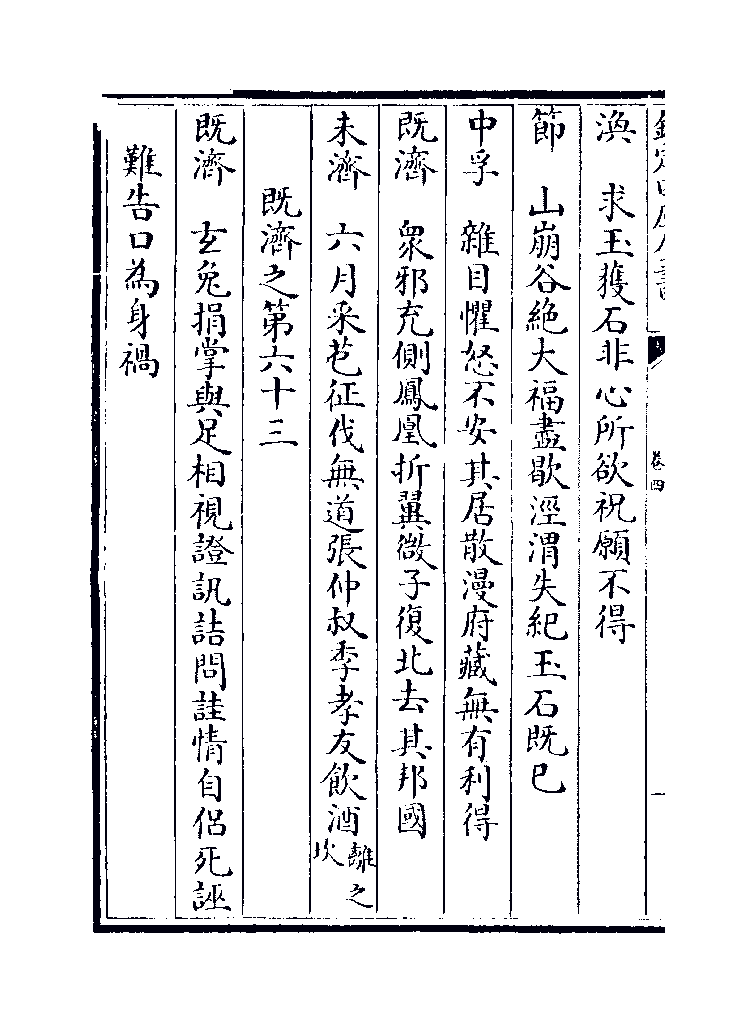 卷四
渙　求玉獲石非心所欲祝願不得
節　山崩谷絶大福盡歇涇渭失紀玉石既已
中孚　雜目懼怒不安其居散漫府藏無有利得
既濟　衆邪充側鳳凰折翼微子復北去其邦國
未濟　六月采芑征伐無道張仲叔季孝友飲酒離之坎
既濟之第六十三
既濟　玄兔捐掌與足相視證訊詰問誩情自侣死誣
難告口為身禍